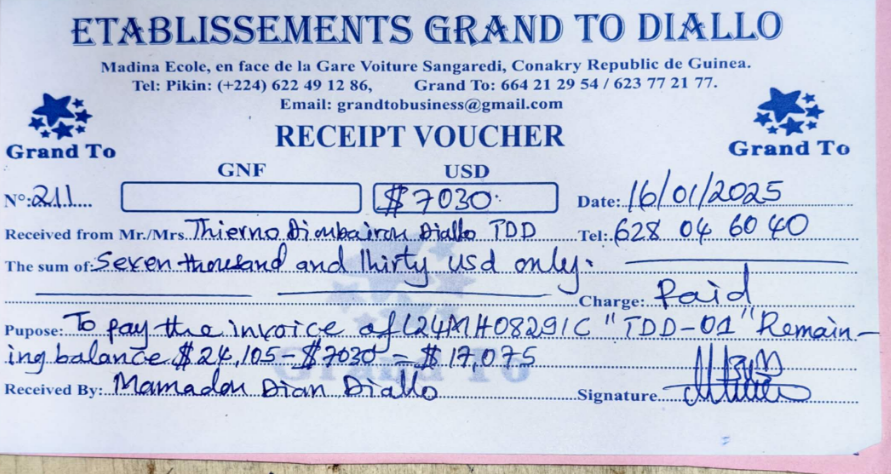 ETABLISSEMENTS GRAND TO DIALLO
Madina Ecole, en face de la Gare Voiture Sangaredi, Conakry Republic de Guinea.
Tel: Pikin: (+224) 622 49 12 86, Grand To: 664 21 29 54 / 623 77 21 77.
Email: grandtobusiness@gmail.com
Grand To
RECEIPT VOUCHER
Grand To
GNF USD
N°: 211 $7030. Date: 16/01/2025
Received from Mr./Mrs. Thierno Diallo TDD Tel: 628 04 60 40
The sum of: Seven thousand and thirty usd only.
Charge: Paid
Pupose: To pay the invoice of "TDD-01" Remain-
ing balance $24,105-$7030 = $17,075
Received By: Mamadou Dian Diallo Signature